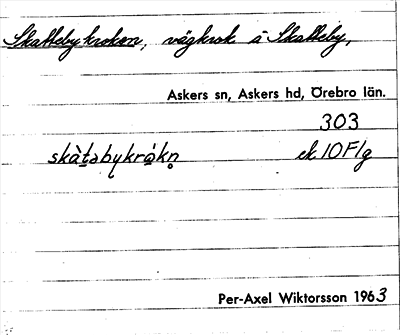 Skattebykroken, vägkrok å Skatteby,
Askers sn, Askers hd, Örebro län.
303
skàtəbykrákn ek 10F1g
Per-Axel Wiktorsson 1963